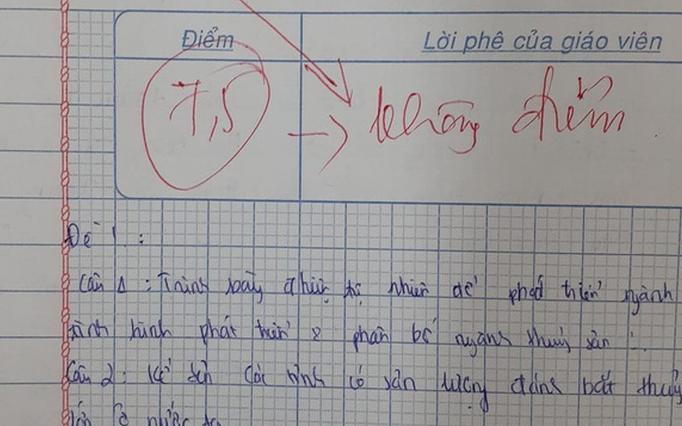 Điểm
Lời phê của giáo viên
7,5 → không điểm
Đề 1 :
Câu 1 : Trình bày tự nhiên để phát triển ngành
tình hình phát triển & phân bố ngành thuỷ sản
Câu 2: Kể tên các tỉnh có sản lượng đánh bắt thuỷ
lớn ở nước ta